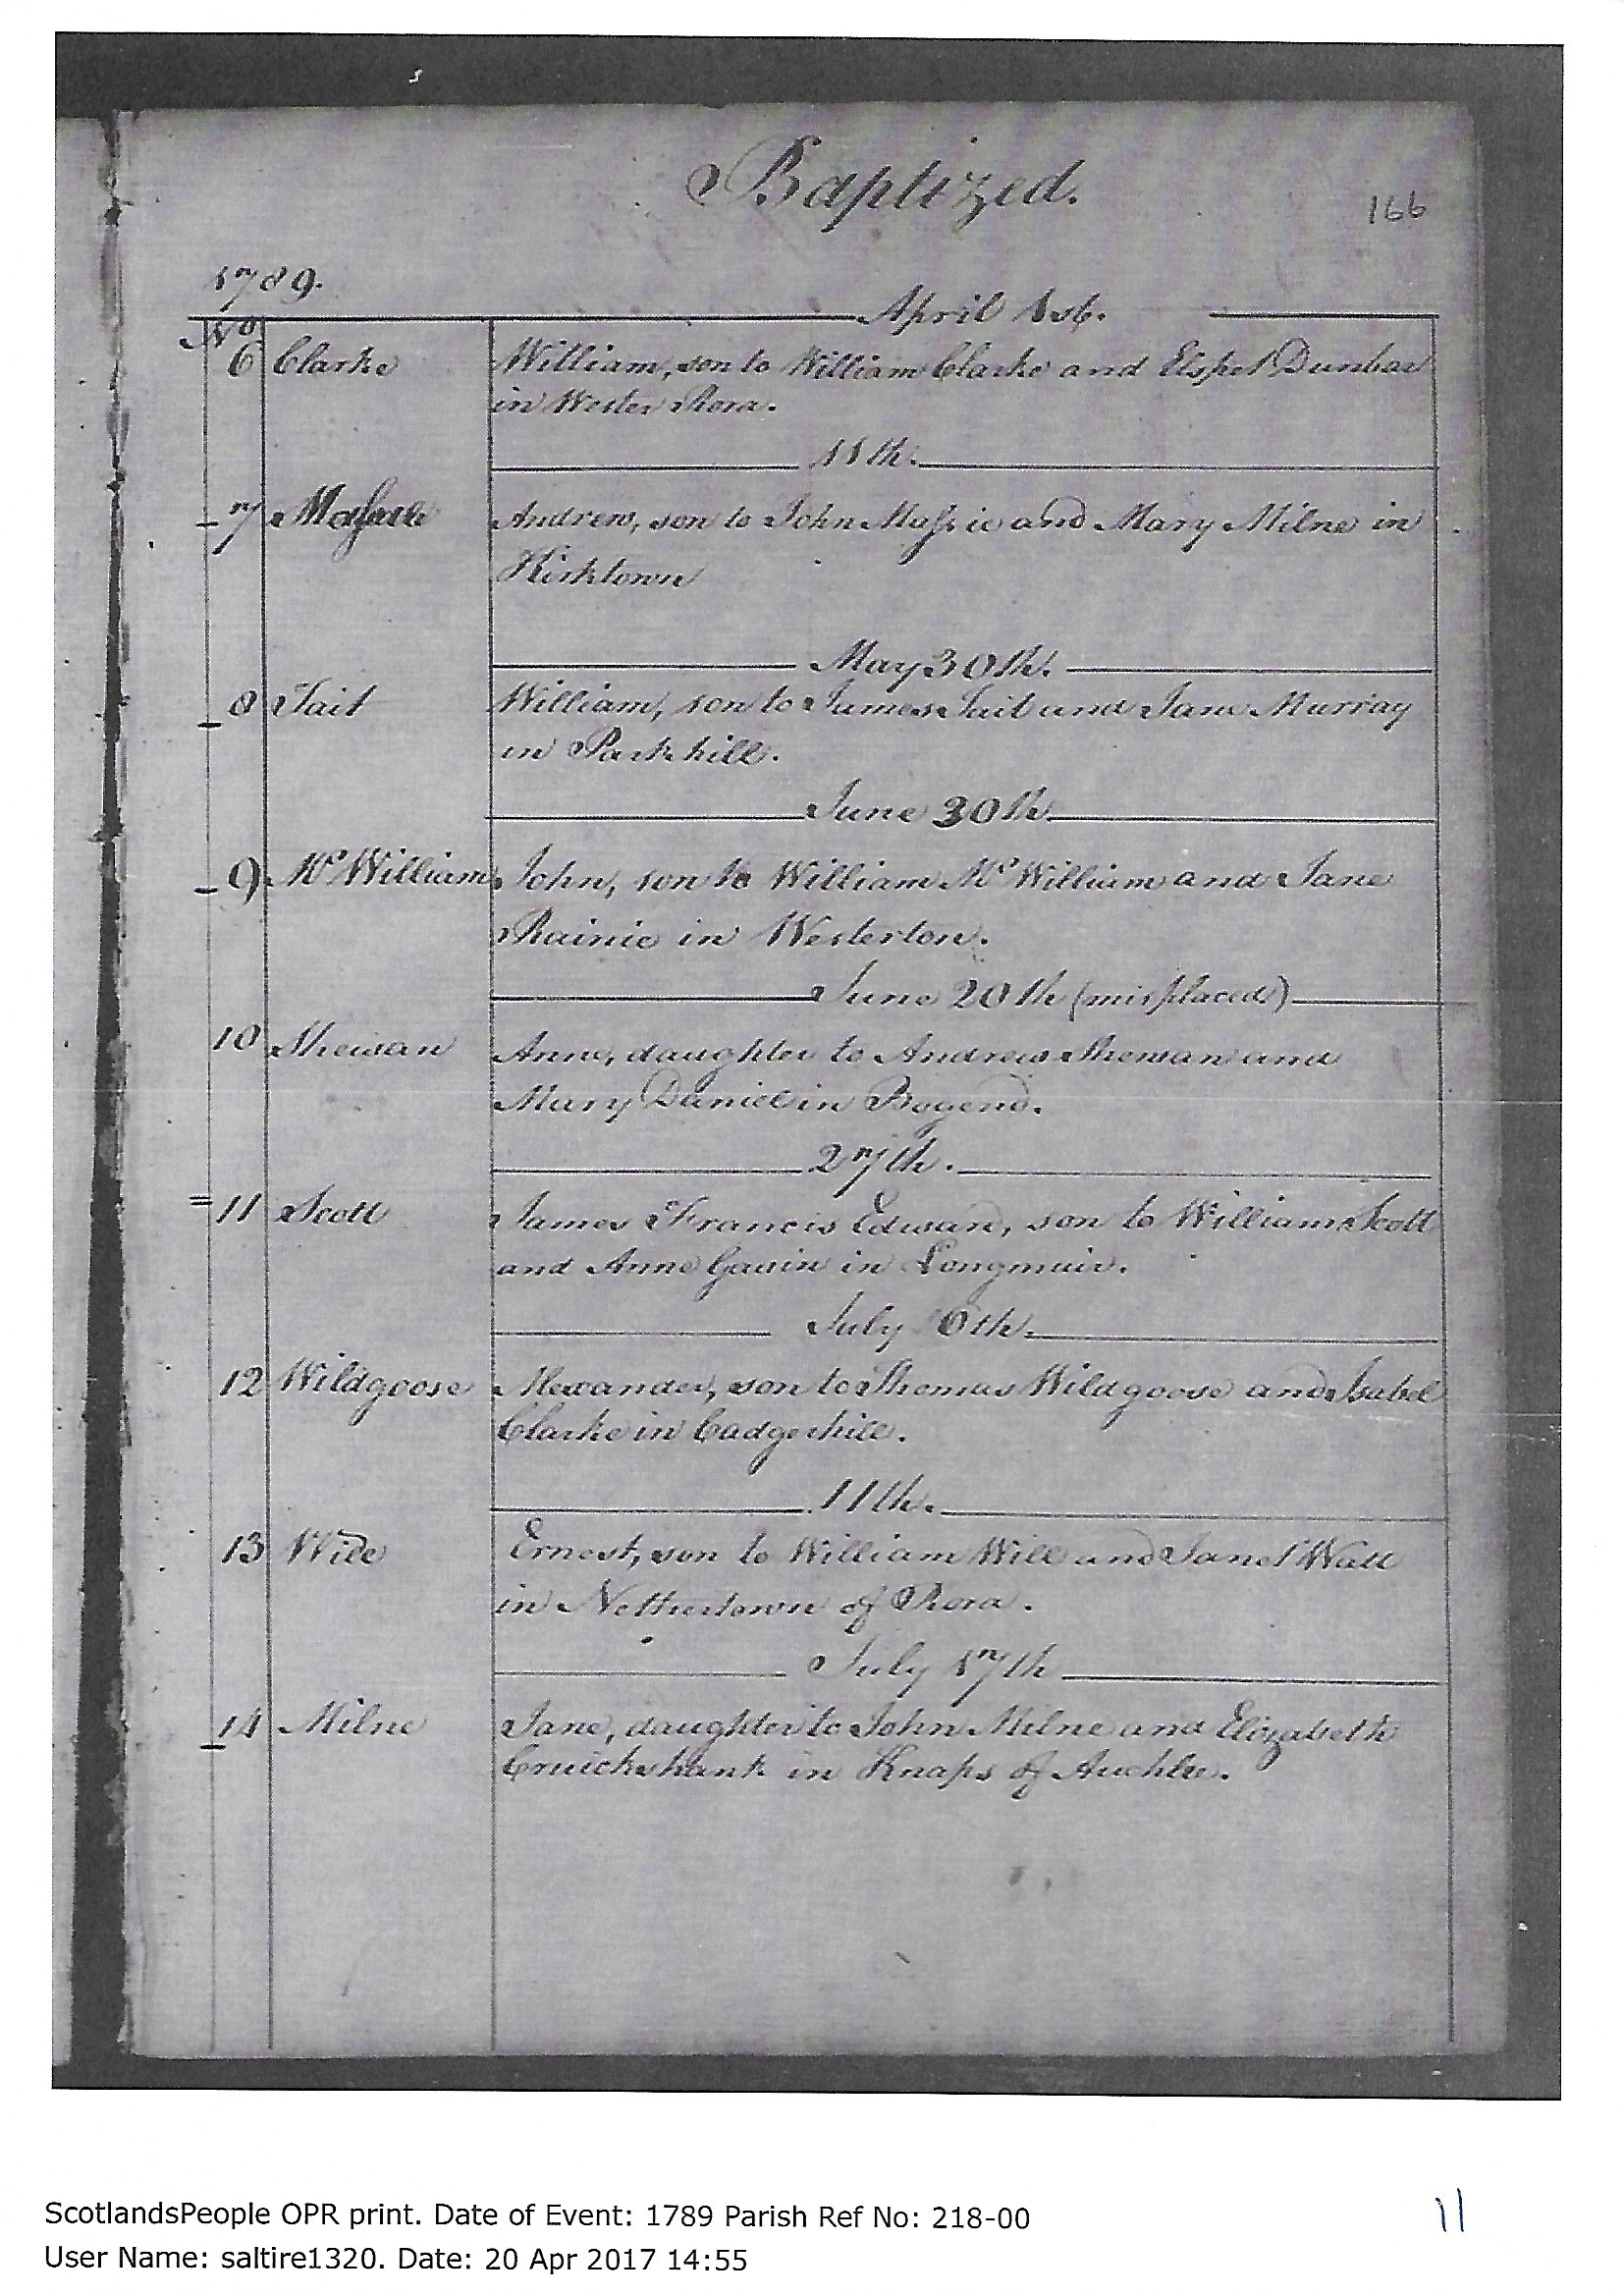 Baptized.
166
1789.
April 1st.
No
6 Clarke William, son to William Clarke and Elspet Dunbar
in Wester Rora.
11th.
7 Massie Andrew, son to John Massie and Mary Milne in
Kirktown
May 30th.
8 Tait William, son to James Tait and Jane Murray
in Parkhill.
June 30th
9 Mc William John, son to William Mc William and Jane
Rainie in Westerton.
June 20th (misplaced)
10 Shewan Anne, daughter to Andrew Shewan and
Mary Daniel in Bogend.
27th.
11 Scott James Francis Edward, son to William Scott
and Anne Gavin in Longmuir.
July 6th.
12 Wildgoose Alexander, son to Thomas Wildgoose and Isabel
Clarke in Cadgerhill.
11th.
13 Will Ernest, son to William Will and Janet Watt
in Nethertown of Rora.
July 17th
14 Milne Jane, daughter to John Milne and Elizabeth
Cruickshank in Knaps of Auchlee.
ScotlandsPeople OPR print. Date of Event: 1789 Parish Ref No: 218-00
11
User Name: saltire1320. Date: 20 Apr 2017 14:55